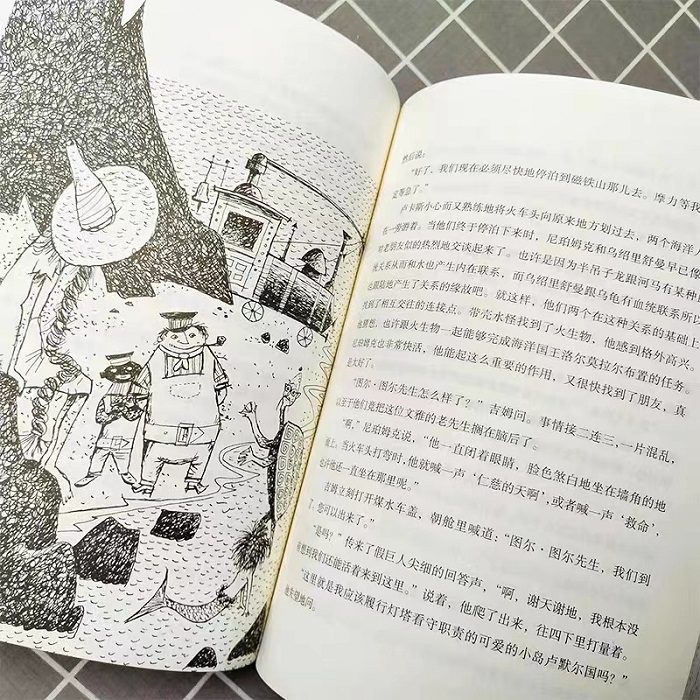 然后说：
“好了，我们现在必须尽快地停泊到磁铁山那儿去。摩力等我
定等急了。”
卢卡斯小心而又熟练地将火车头向原来地方划过去，两个海洋人
在一旁游着。当他们终于停泊下来时，尼珀姆克和乌绍里舒曼早已像
对老朋友似的热烈地交谈起来了。也许是因为半吊子龙跟河马有某种
地关系从而和水也产生内在联系，而乌绍里舒曼跟乌龟有血统联系所以
也跟陆地产生了关系的缘故吧。就这样，他们两个在这种关系的基础上
找到了相互交往的连接点。带壳水怪找到了火生物，他感到格外高兴。
他猜想，也许跟火生物一起能够完成海洋国王洛尔莫拉尔布置的任务。
尼珀姆克也非常快活，他能起这么重要的作用，又很快找到了朋友，真
是太好了。
“图尔·图尔先生怎么样了？”吉姆问。事情接二连三，一片混乱，
以至于他们竟把这位文雅的老先生搁在脑后了。
“啊，”尼珀姆克说，“他一直闭着眼睛，脸色煞白地坐在墙角的地
板上，当火车头打弯时，他就喊一声‘仁慈的天啊’，或者喊一声‘救命’，
也许他还一直坐在那里呢。”
吉姆立刻打开煤水车盖，朝舱里喊道：“图尔·图尔先生，我们到
了，您可以出来了。”
“是吗？”传来了假巨人尖细的回答声，“啊，谢天谢地，我根本没
有想到我们还能活着来到这里。”说着，他爬了出来，往四下里打量着。
“这里就是我应该履行灯塔看守职责的可爱的小岛卢默尔国吗？”
他失望地问。